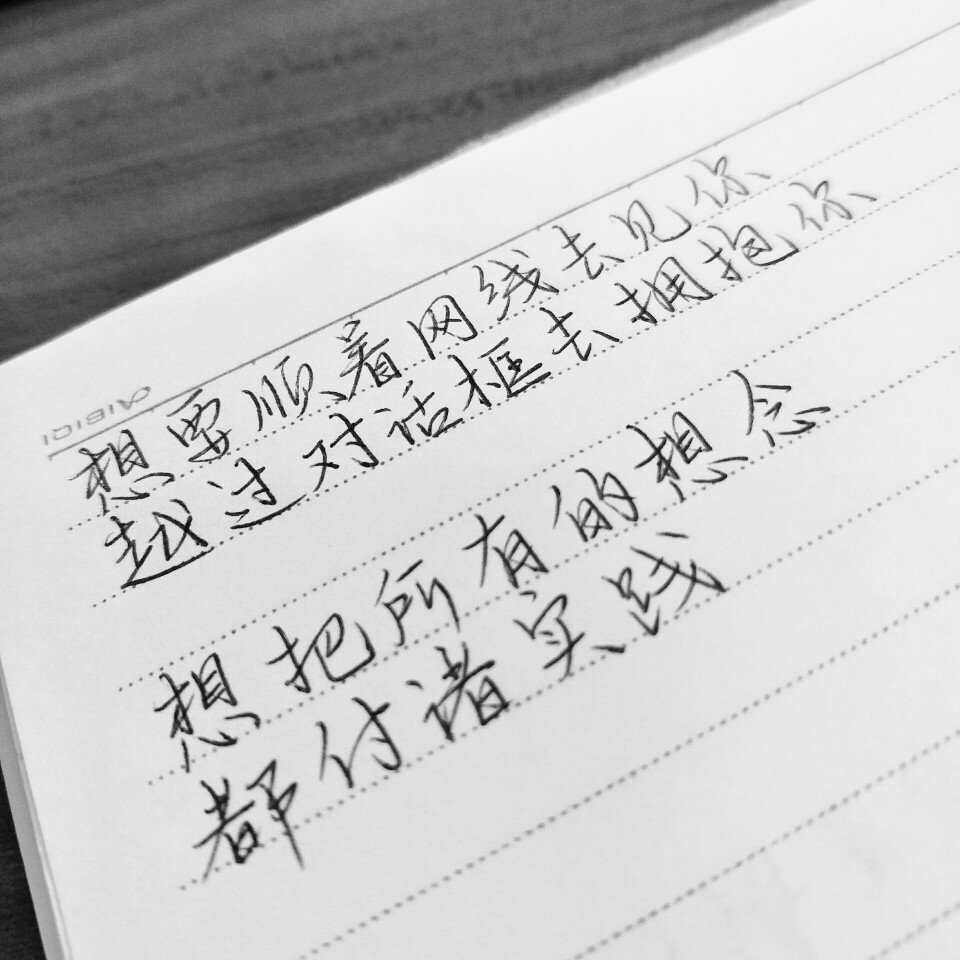 想要顺着网线去见你、
越过对话框去拥抱你、
想把所有的想念
都付诸实践